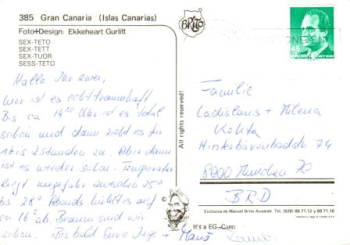 385 Gran Canaria (Islas Canarias)
Foto+Design: Ekkeheart Gurlitt
SEX-TETO
SEX-TETT
SEX-TUOR
SESS-TETO
Hallo Ihr zwei,
hier ist es echt traumhaft.
Bis ca 14.00 Uhr ist es total
schön und dann zieht es für
1 bis 2 Stunden zu. Aber dann
ist es wieder schön. Temperatur
liegt ungefähr zwischen 25°
bis 28°. Abends kühlt es auf
ca 16° ab. Braun sind wir
schon. Bis bald Eure
All rights reserved!
It's a EG-Card
BRITO
45
Familie
Ladislaus + Milena
8000 München 70
BRD
Exclusiva de Manuel Brito Auswahl Tel. (928)